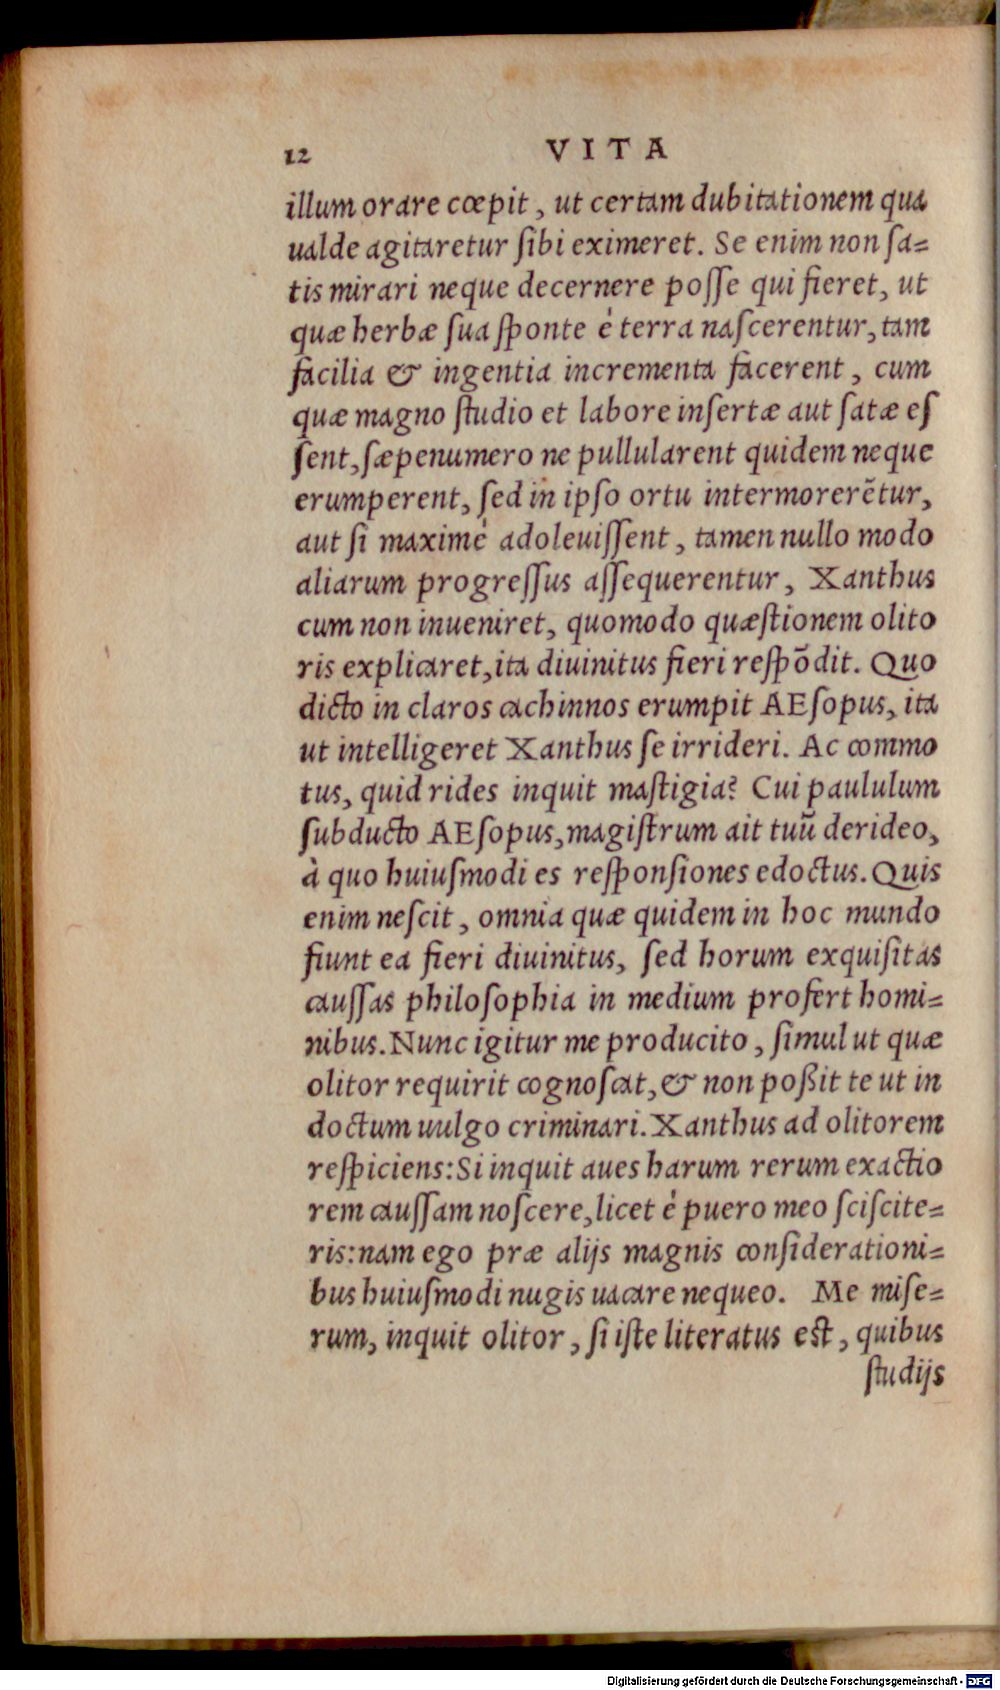 12 VITA
illum orare cœpit, ut certam dubitationem qua
ualde agitaretur ſibi eximeret. Se enim non ſa=
tis mirari neque decernere poſſe qui fieret, ut
quæ herbæ ſua ſponte è terra naſcerentur, tam
facilia & ingentia incrementa facerent, cum
quæ magno ſtudio et labore inſertæ aut ſatæ eſ
ſent, ſæpenumero ne pullularent quidem neque
erumperent, ſed in ipſo ortu intermorerẽtur,
aut ſi maximè adoleuiſſent, tamen nullo modo
aliarum progreſſus aſſequerentur, Xanthus
cum non inueniret, quomodo quæſtionem olito
ris explicaret, ita diuinitus fieri reſpõdit. Quo
dicto in claros cachinnos erumpit AEſopus, ita
ut intelligeret Xanthus ſe irrideri. Ac commo
tus, quid rides inquit maſtigia? Cui paululum
ſubducto AEſopus, magiſtrum ait tuũ derideo,
à quo huiuſmodi es reſponſiones edoctus. Quis
enim neſcit, omnia quæ quidem in hoc mundo
fiunt ea fieri diuinitus, ſed horum exquiſitas
cauſſas philoſophia in medium profert homi=
nibus. Nunc igitur me producito, ſimul ut quæ
olitor requirit cognoſcat, & non poßit te ut in
doctum uulgo criminari. Xanthus ad olitorem
reſpiciens: Si inquit aues harum rerum exactio
rem cauſſam noſcere, licet è puero meo ſciſcite=
ris: nam ego præ alijs magnis conſiderationi=
bus huiuſmodi nugis uacare nequeo. Me miſe=
rum, inquit olitor, ſi iſte literatus eſt, quibus
ſtudijs
Digitalisierung gefördert durch die Deutsche Forschungsgemeinschaft - DFG